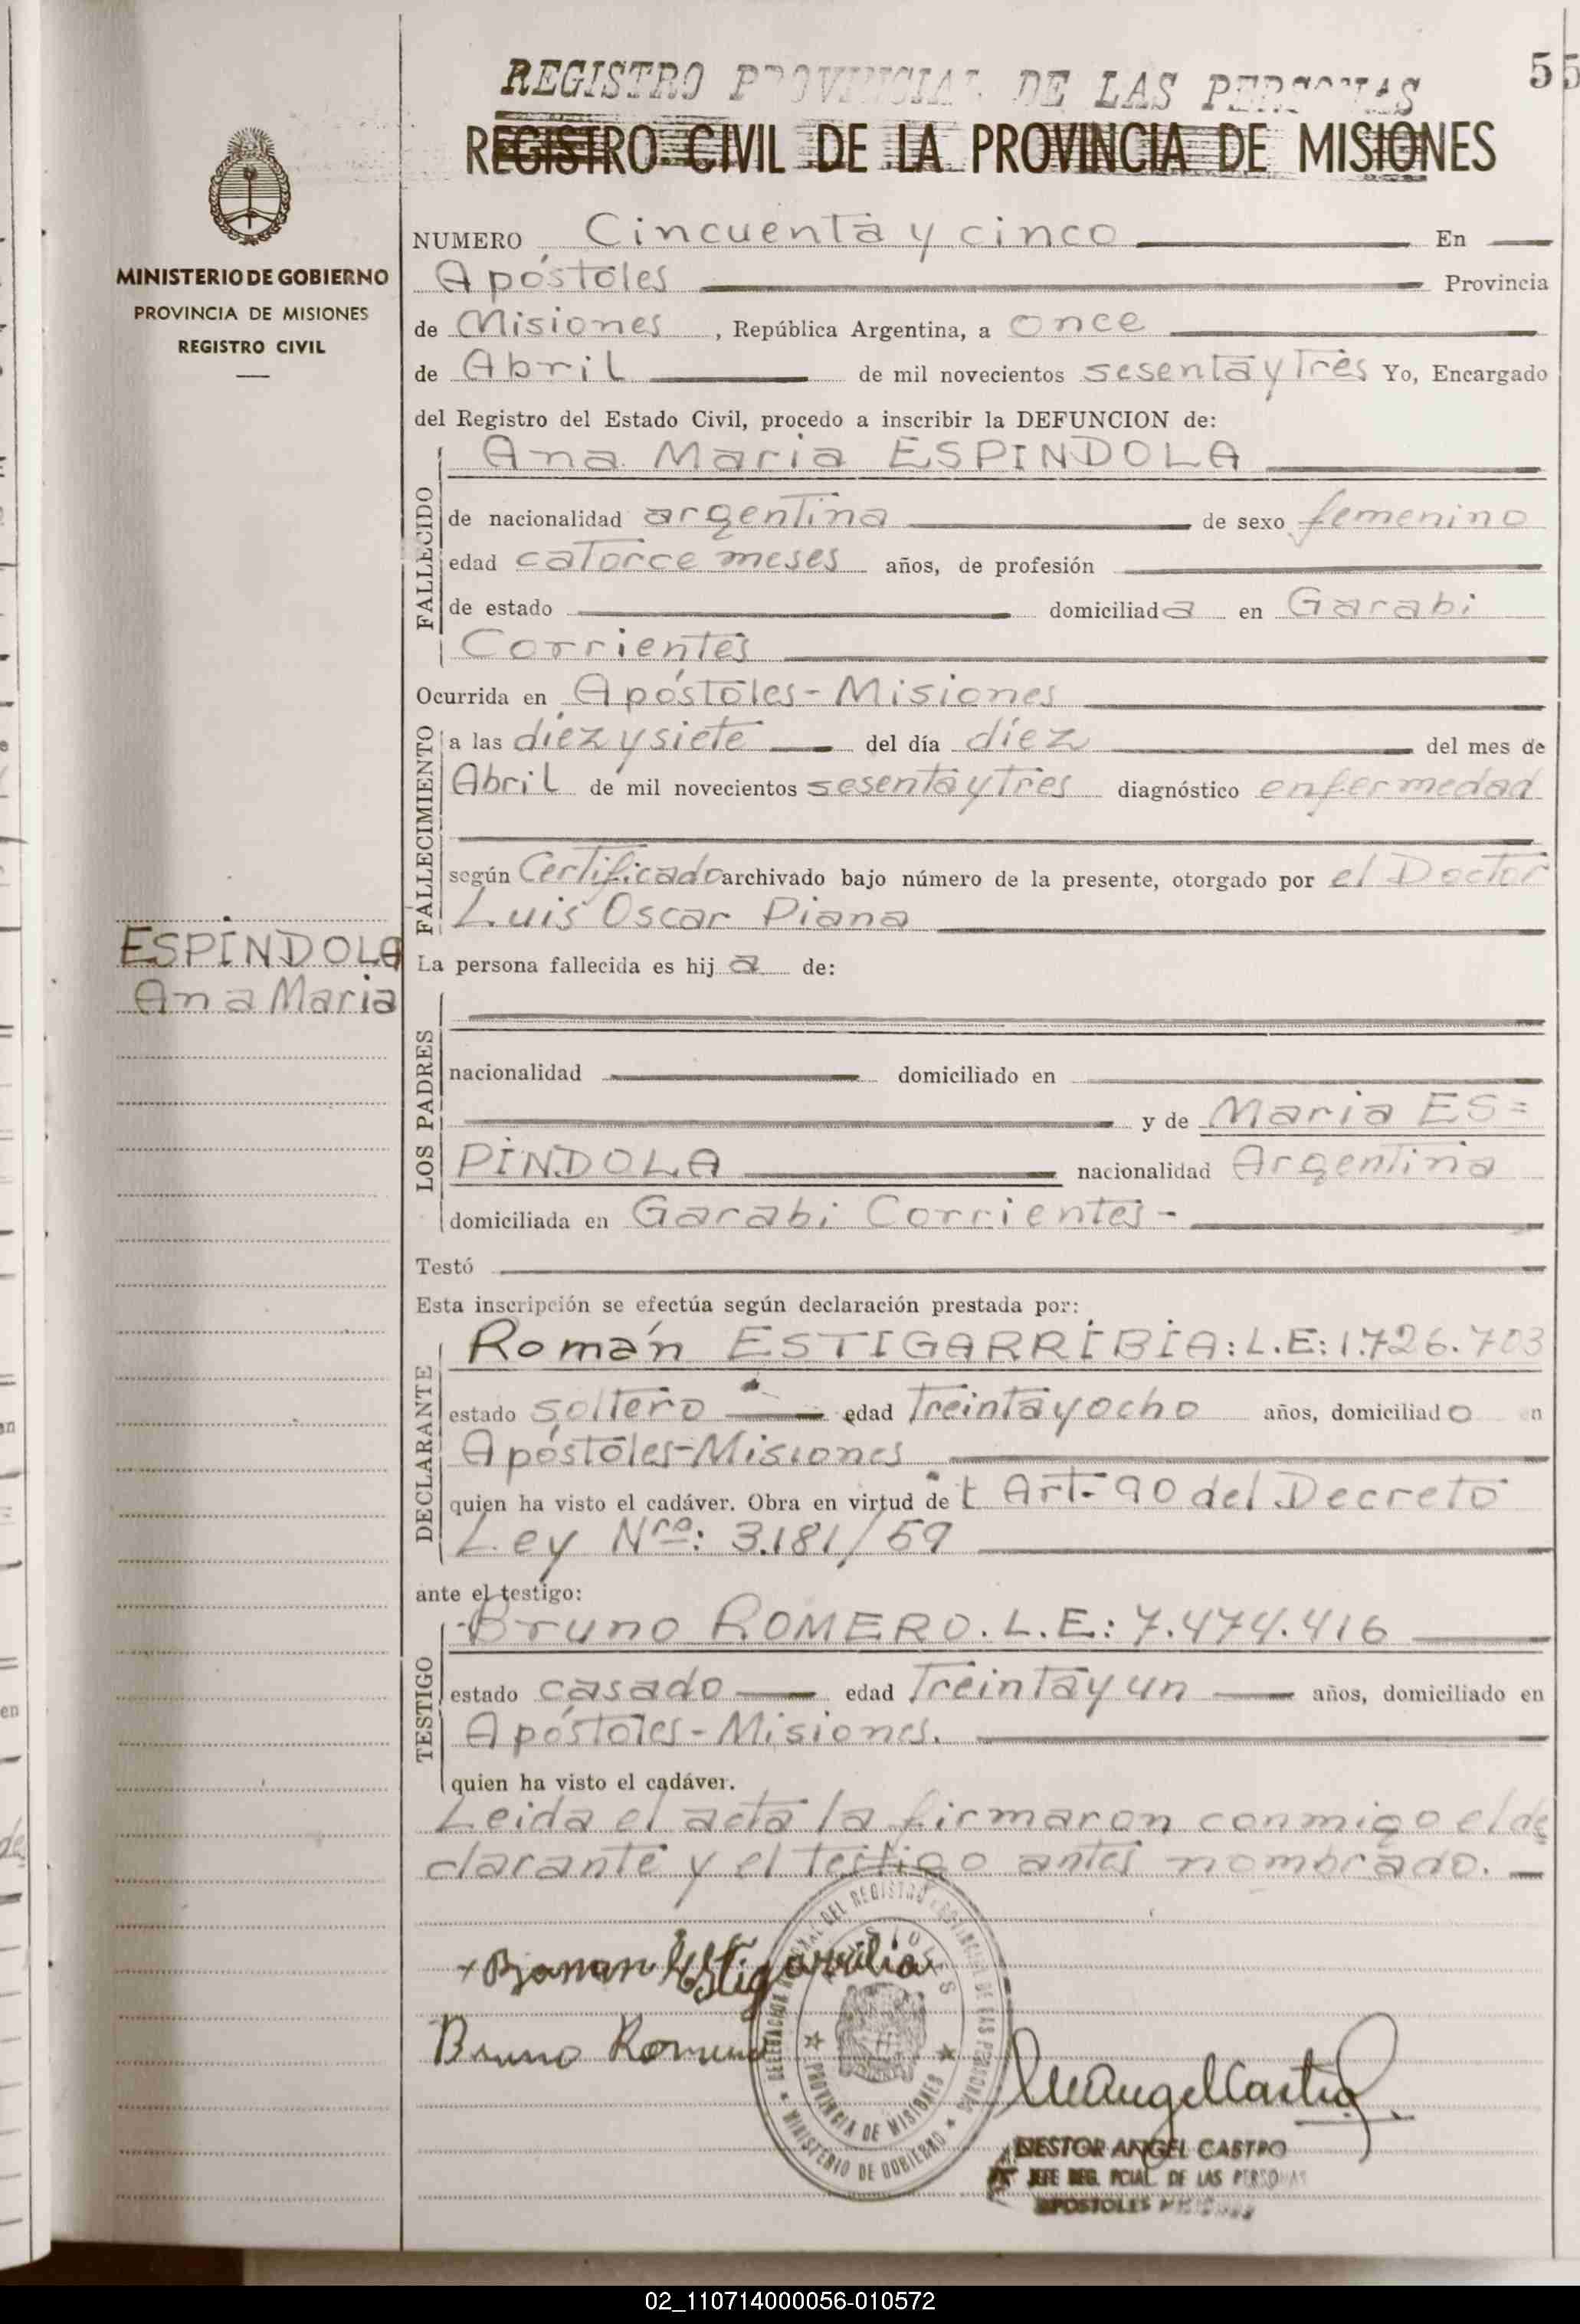 REGISTRO PROVINCIAL DE LAS PERSONAS
55
REGISTRO CIVIL DE LA PROVINCIA DE MISIONES
MINISTERIO DE GOBIERNO
PROVINCIA DE MISIONES
REGISTRO CIVIL
NUMERO Cincuenta y cinco En
Apóstoles Provincia
de Misiones, República Argentina, a once
de Abril de mil novecientos sesenta y Tres Yo, Encargado
del Registro del Estado Civil, procedo a inscribir la DEFUNCION de:
FALLECIDO
Ana Maria ESPINDOLA
de nacionalidad argentina de sexo femenino
edad catorce meses años, de profesión
de estado domiciliada en Garabi
Corrientes
Ocurrida en Apóstoles-Misiones
FALLECIMIENTO
a las diez y siete del día diez del mes de
Abril de mil novecientos sesenta y Tres diagnóstico enfermedad
según Certificado archivado bajo número de la presente, otorgado por el Doctor
Luis Oscar Piana
ESPINDOLA
Ana Maria
La persona fallecida es hija de:
LOS PADRES
nacionalidad domiciliado en
y de Maria ES=
PINDOLA nacionalidad Argentina
domiciliada en Garabi Corrientes-
Testó
Esta inscripción se efectúa según declaración prestada por:
DECLARANTE
Román ESTIGARRIBIA: L.E: 1.726.703
estado soltero edad Treinta y ocho años, domiciliado en
Apóstoles-Misiones
quien ha visto el cadáver. Obra en virtud del Art- 90 del Decreto
Ley Nro: 3.181/59
ante el testigo:
TESTIGO
Bruno ROMERO. L.E: 7.474.416
estado casado edad Treinta y un años, domiciliado en
Apóstoles-Misiones.
quien ha visto el cadáver.
Leida el acta la firmaron conmigo el de
clarante y el testigo antes nombrado.
+ Roman Estigarribia
Bruno Romero
DELEGACION REGIONAL DEL REGISTRO PROVINCIAL DE LAS PERSONAS
MISIONES
PROVINCIA DE MISIONES
MINISTERIO DE GOBIERNO
NESTOR ANGEL CASTRO
JEFE REG. PCIAL. DE LAS PERSONAS
APOSTOLES MISIONES
02_110714000056-010572